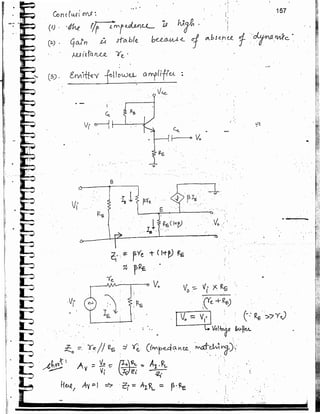 157
Conclusions:
(1). the i/p impedance is high.
(2). Gain is stable because of absence of dynamic
resistance re.
(3). Emitter follower amplifier :
Vcc
RB
Vi
Vo
RE
B
Vi
RB
IB
βre
βIB
E
RE(1+β)
Vo
Zi = βre + (1+β) RE
≈ βRE
re
Vo
Vi
IE
RE
Vo = Vi × RE
(re + RE)
Vo = Vi (∵ RE >> re)
Voltage Buffer
Zo = re // RE ≈ re (impedance matching).
Short! Av = Vo/Vi = AI.RL/Zi
Here, Av = 1 ⇒ Zi = AIRL = β.RE